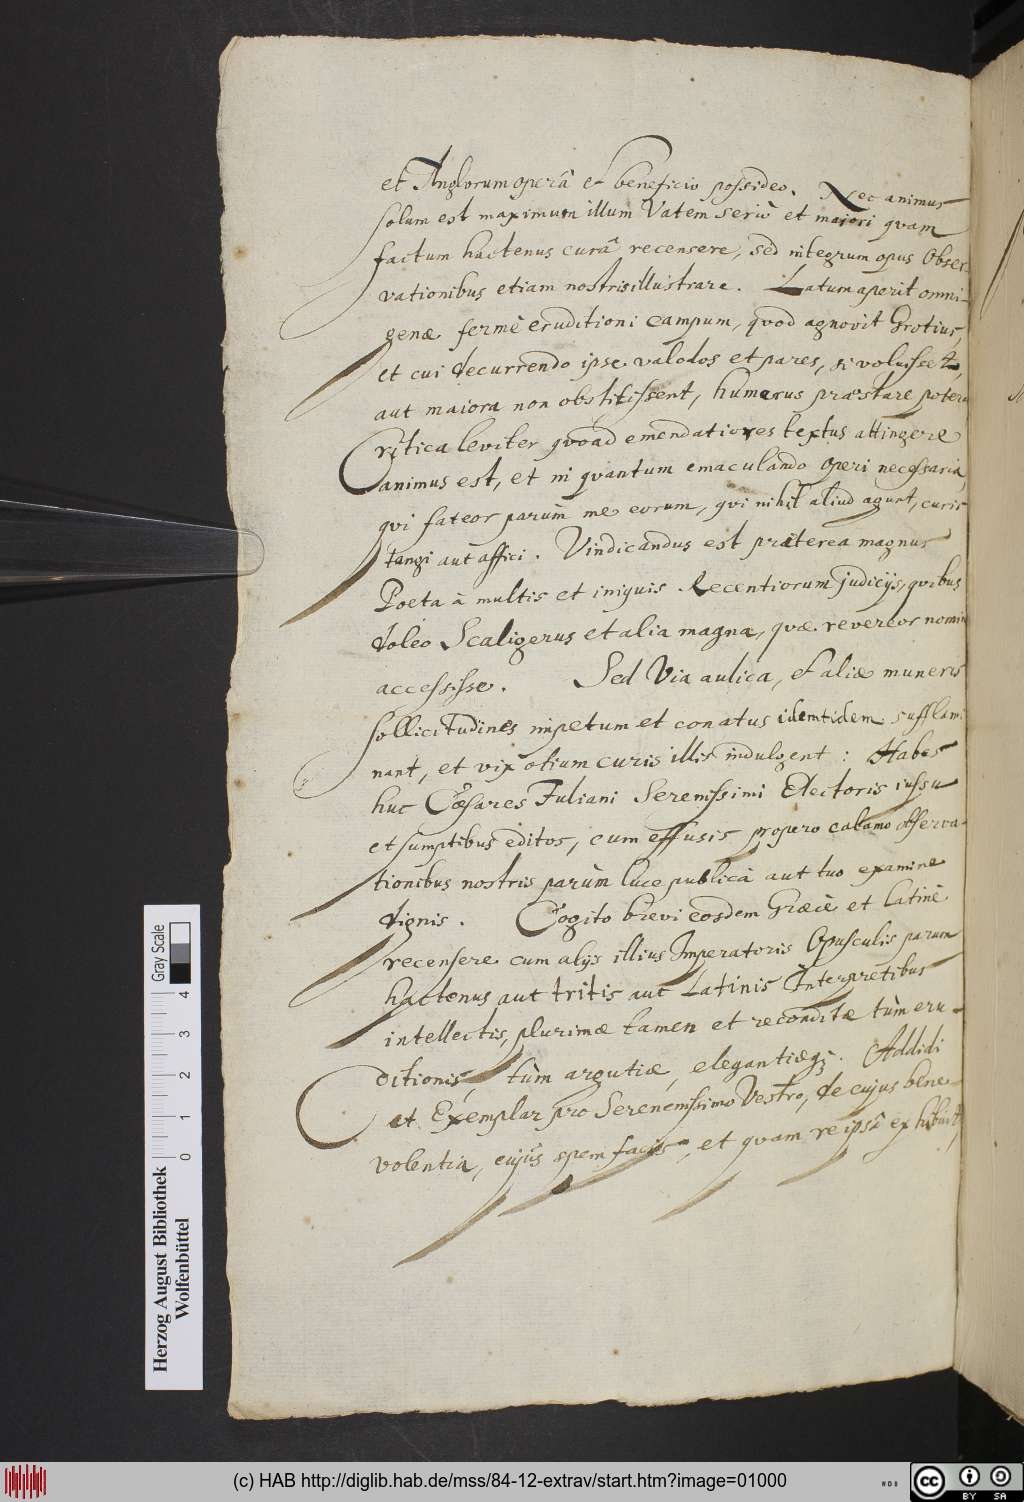 et Anglorum operâ et beneficio possideo. Nec animus
solum est maximum illum Vatem seriò et maiori quam
factum hactenus curâ recensere, sed integrum opus Obser-
vationibus etiam nostris illustrare. Latum aperit omni-
genæ fermè eruditioni campum, quod agnovit Grotius,
et cui decurrendo ipse validos et pares, si voluisset,
aut maiora non obstitissent, humerus præstare poterat
Critica leviter quoad emendationes textus attingere
animus est, et in quantum emaculando Operi necessaria,
qui fateor parùm me eorum, qui nihil aliud agunt, curis
tangi aut affici. Vindicandus est præterea magnus
Poeta à multis et iniquis Recentiorum judicijs, quibus
doleo Scaligerus et alia magna, quæ revereor nomina
accessisse. Sed Via aulica, et aliæ muneris
sollicitudines impetum et conatus identidem sufflami
nant, et vix otium curis illis indulgent: Habes
huc Cæsares Juliani Serenissimi Electoris iussu
et sumptibus editos, cum effusis propero calamo observa-
tionibus nostris parùm luce publicâ aut tuo examine
dignis. Cogito brevi eosdem Græcè et Latinè
recensere cum alijs illius Imperatoris Opusculis parum
hactenus aut tritis aut Latinis Interpretibus
intellectis, plurimæ tamen et reconditæ tùm eru-
ditionis, tùm argutiæ, elegantiæq;. Addidi
et Exemplar pro Serenenissimo Vestro, de cujus bene-
volentia, cujus spem facis, et quam reipsâ exhibuit,
Gray Scale
4
3
2
1
0
Herzog August Bibliothek
Wolfenbüttel
(c) HAB http://diglib.hab.de/mss/84-12-extrav/start.htm?image=01000
cc
BY SA